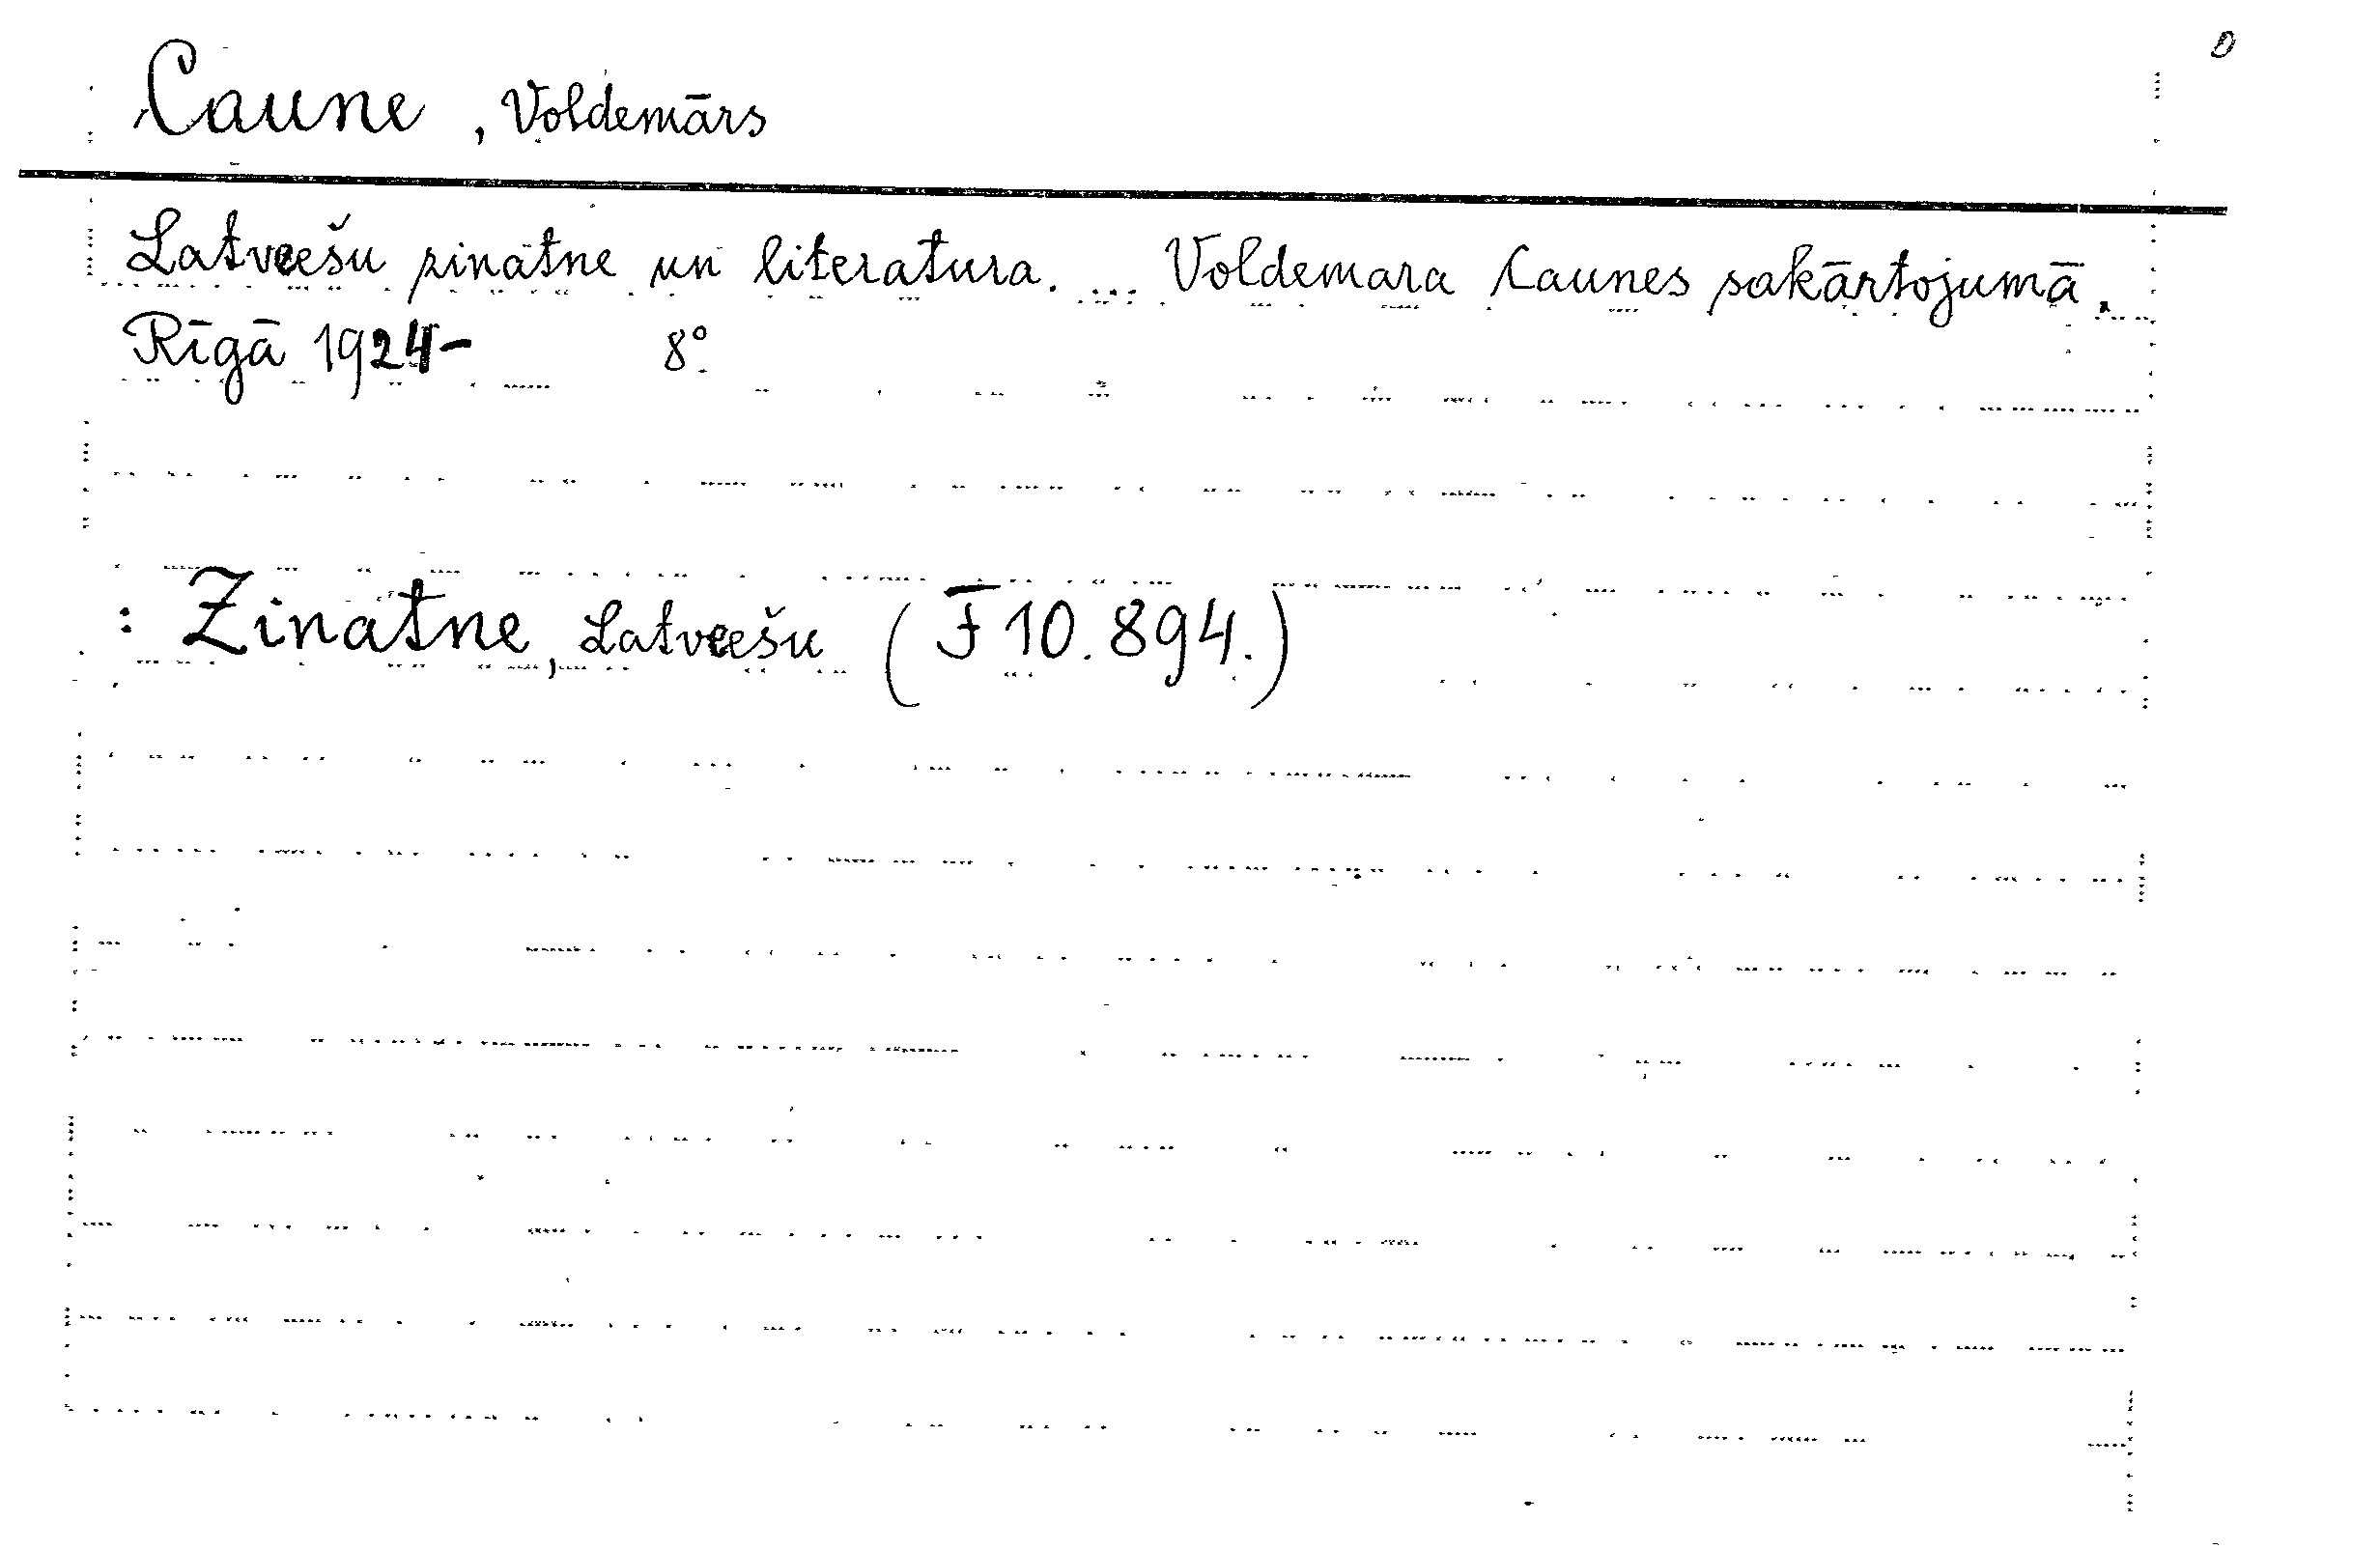 D
Caune, Voldemārs
Latveešu zinātne un literatura. ... Voldemara Caunes sakārtojumā.
Rīgā 1924- 8°
: Zinatne, Latveešu (F 10.894.)